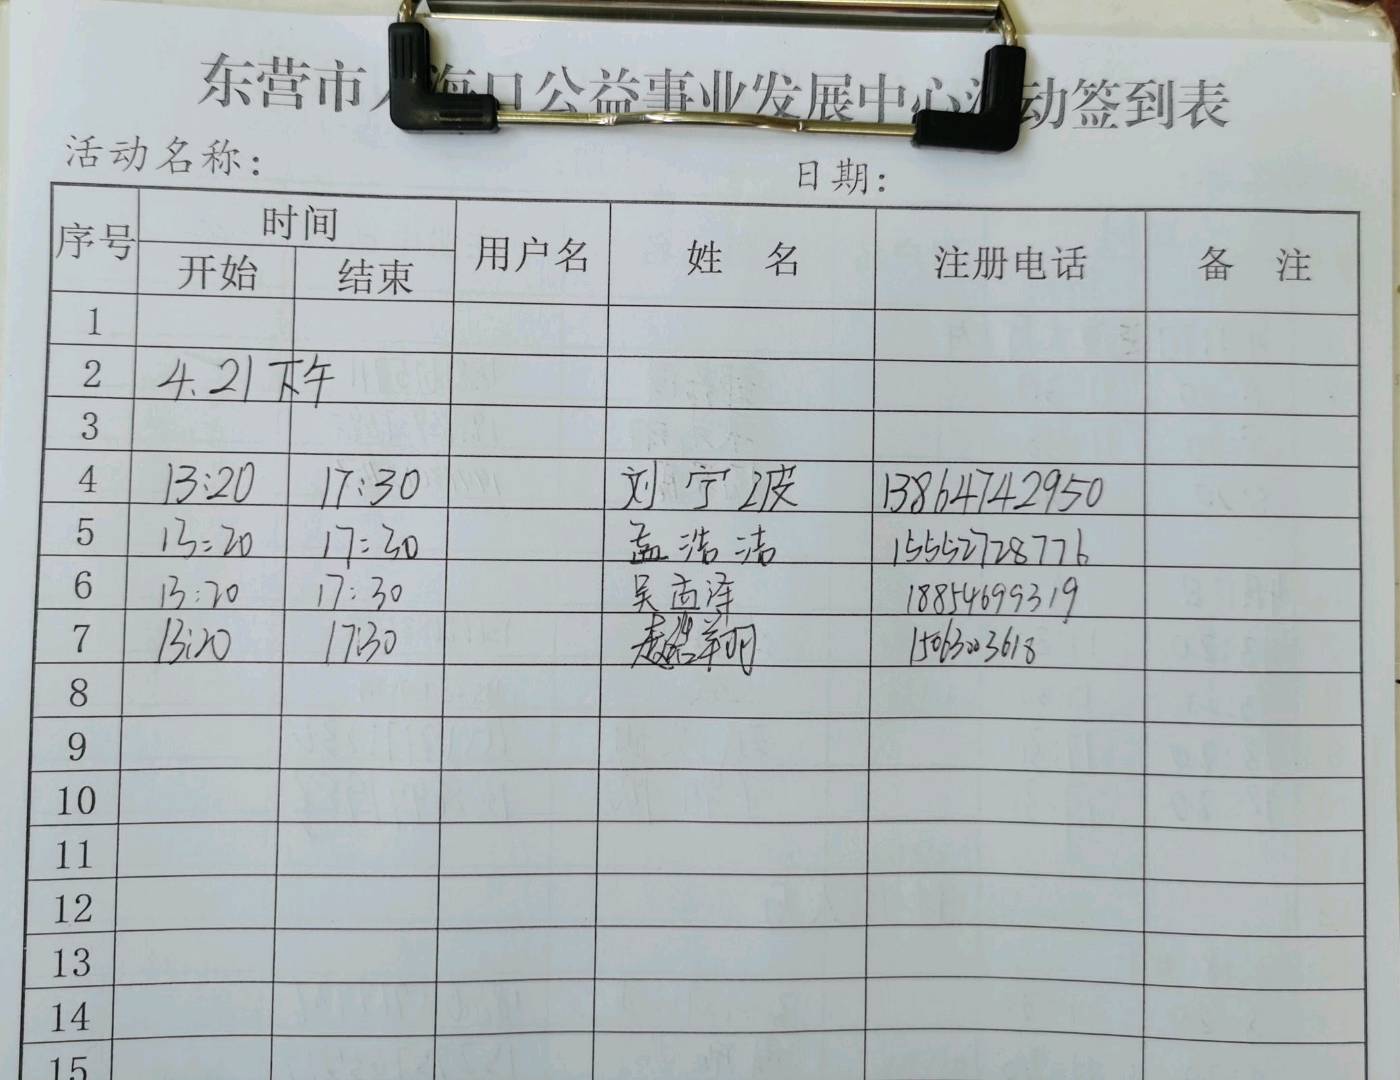 东营市入海口公益事业发展中心活动签到表
活动名称: 日期:
序号 时间 用户名 姓 名 注册电话 备 注
开始 结束
1
2 4.21下午
3
4 13:20 17:30 刘宁波 13864742950
5 13:20 17:30 孟浩洁 15552728776
6 13:20 17:30 吴孟泽 18854699319
7 13:20 17:30 赵翔 15063003618
8
9
10
11
12
13
14
15